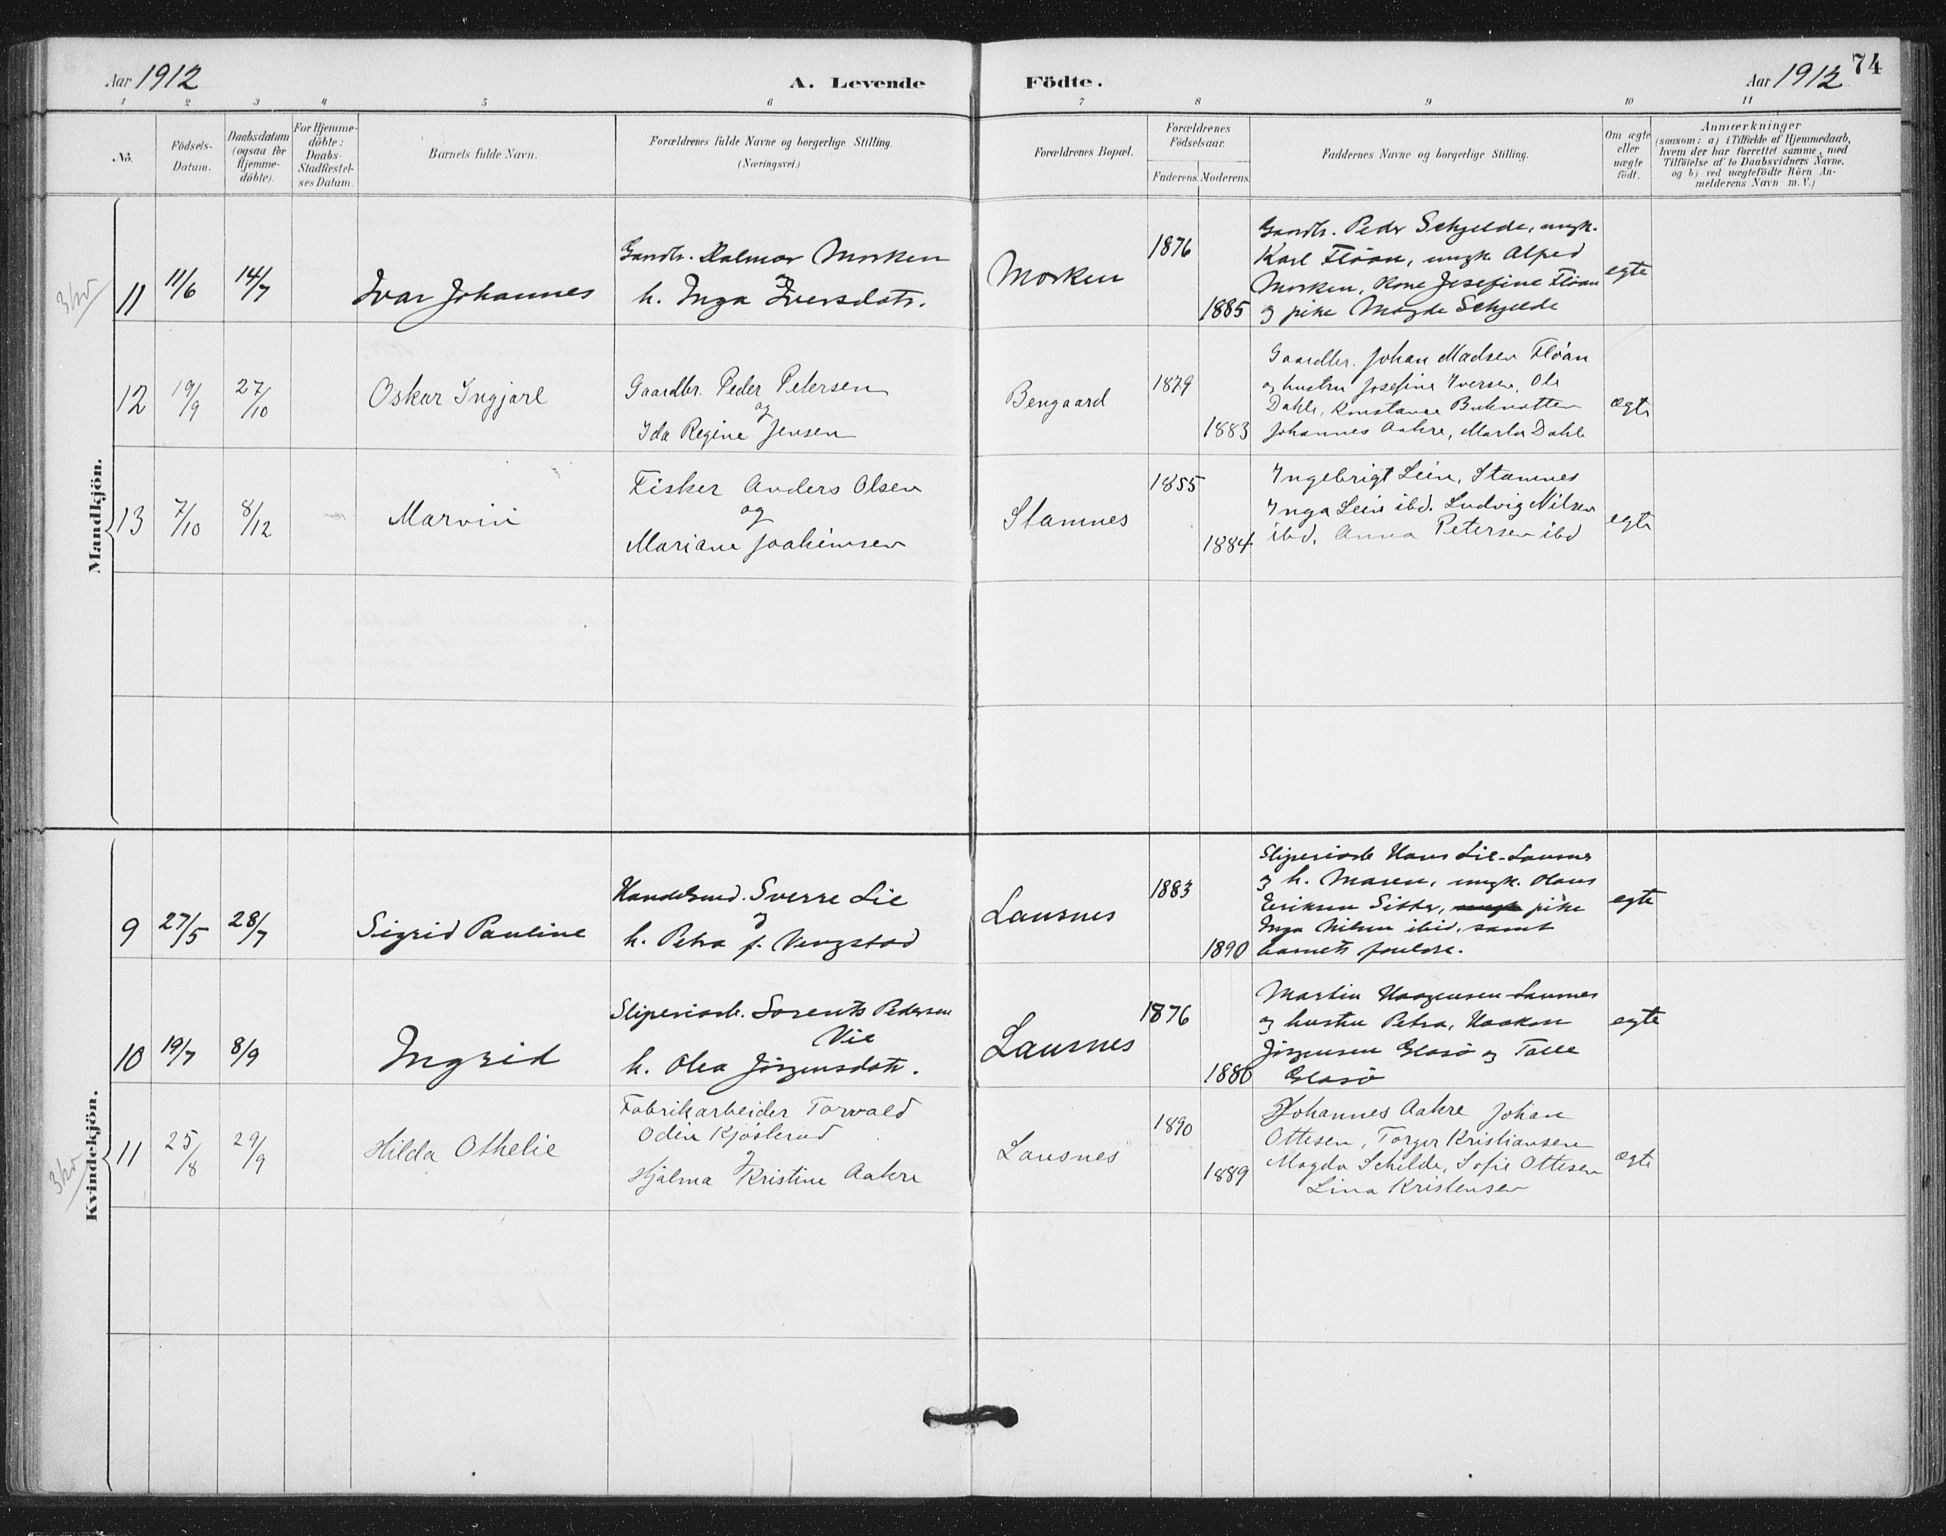 Aar 1912
A. Levende
Födte.
Aar 1912
74
1 2 3 4 5 6 7 8 9 10 11
No.
Födsels-
Datum.
Daabsdatum
(ogsaa for
Hjemme-
döbte).
For Hjemme-
döbte:
Daabs-
Stadfæstel-
ses Datum.
Barnets fulde Navn.
Forældrenes fulde Navne og borgerlige Stilling.
(Næringsvei.)
Forældrenes Bopæl.
Forældrenes
Födselsaar.
Faderens. Moderens.
Faddernes Navne og borgerlige Stilling.
Om ægte
eller
uægte
födt.
Anmærkninger
(saasom: a) i Tilfælde af Hjemmedaab,
hvem der har forrettet samme, med
Tilföielse af to Daabsvidners Navne,
og b) ved uægtefödte Börn An-
melderens Navn m. V.)
Mandkjön.
11
11/6
14/7
Ivar Johannes
Gaardbr. Halmar Morken
og
h. Inga Iversdatr.
Morken
1876
1885
Gaardbr. Peder Schjelde, ungk.
Karl Flöan, ungk Alfred
Morken, Kone Josefine Flöan
og pike Magda Schjelde
egte
12
19/9
27/10
Oskar Ingjarl
Gaardbr. Peder Petersen
og
Ida Regine Jensen
Bengaard
1879
1883
Gaardbr. Johan Madsen Flöan
og hustru Josefine Iversen, Ole
Dahle, Konstance
Johannes Aakre, Marta Dahle
ægte
13
7/10
8/12
Marvin
Fisker Anders Olsen
og
Mariane Joakimsen
Stamnes
1855
1884
Ingebrigt Lein, Stamnes
Inga Lein ibd. Ludvig Nilsen
ibd. Anna Petersen ibd
egte
Kvindekjön.
9
27/5
28/7
Sigrid Pauline
Handelsmd. Sverre Lie
og
h. Petra f. Vengstad
Lausnes
1883
1890
Sliperiarb Hans Lie-Lausnes
og h. Maren, ungk. Hans
Eriksen Sitter, ungk pike
Inga Nilsen ibid, samt
barnets foreldre.
egte
10
19/7
8/9
Ingrid
Sliperiarb. Lorents Pedersen
Vie
h. Olea Jörgensdatr.
Lausnes
1876
1880
Martin Haagensen Lausnes
og hustru Petra, Haakon
Jörgensen Glasö og Talle
Glasö
egte
11
25/8
29/9
Hilda Othelie
Fabrikarbeider Torvald
Odin Kjösterud
og
Hjalma Kristine Aakre
Lausnes
1890
1889
Johannes Aakre Johan
Ottesen, Torger Kristiansen
Magda Schilde, Sofie Ottesen
Lina Kristensen
ægte